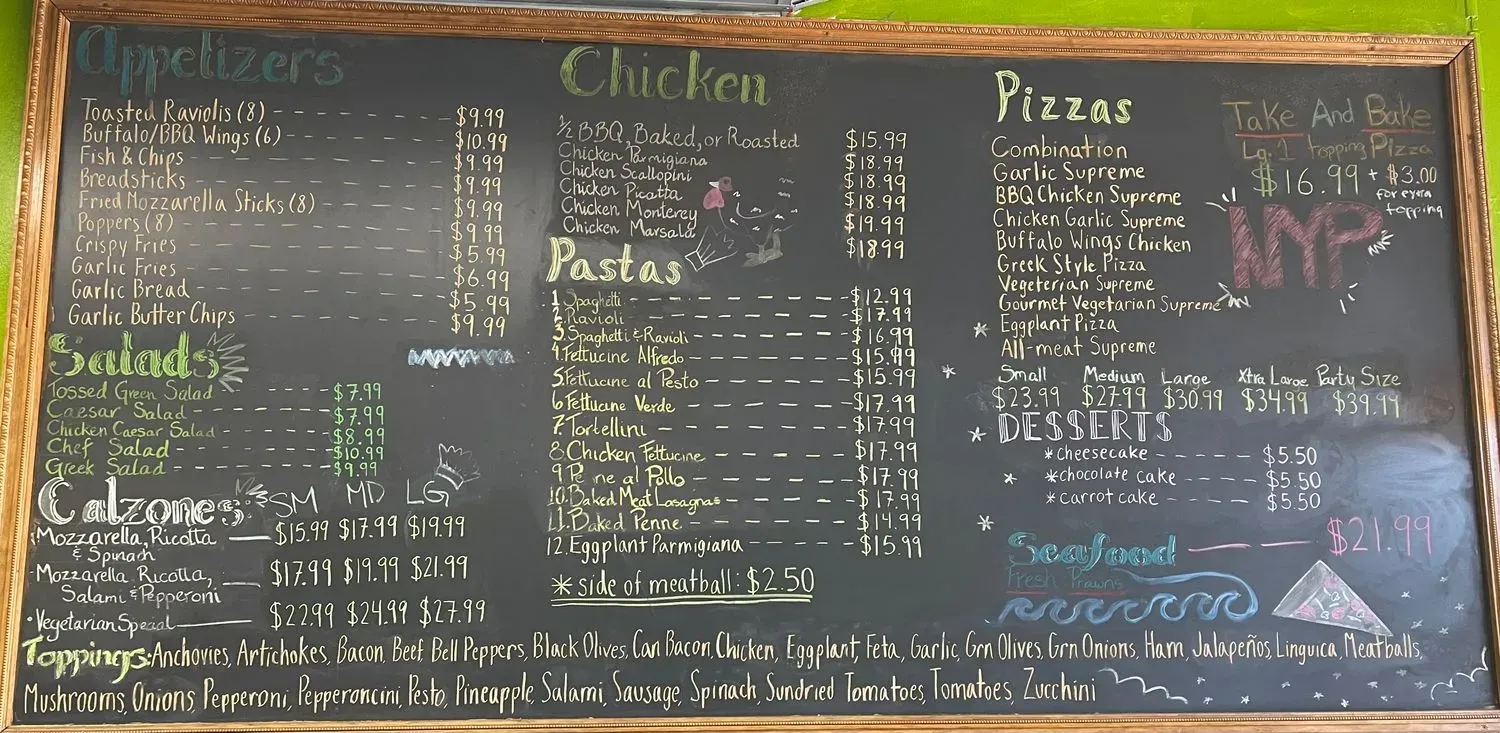 Appetizers
Toasted Raviolis (8) $9.99
Buffalo/BBQ Wings (6) $10.99
Fish & Chips $9.99
Breadsticks $9.99
Fried Mozzarella Sticks (8) $9.99
Poppers (8) $9.99
Crispy Fries $5.99
Garlic Fries $6.99
Garlic Bread $5.99
Garlic Butter Chips $9.99
Salads
Tossed Green Salad $7.99
Caesar Salad $7.99
Chicken Caesar Salad $8.99
Chef Salad $10.99
Greek Salad $9.99
Calzones SM MD LG
Mozzarella, Ricotta $15.99 $17.99 $19.99
& Spinach
Mozzarella Ricotta, $17.99 $19.99 $21.99
Salami & Pepperoni
Vegetarian Special $22.99 $24.99 $27.99
Chicken
1/2 BBQ, Baked, or Roasted $15.99
Chicken Parmigiana $18.99
Chicken Scallopini $18.99
Chicken Picatta $18.99
Chicken Monterey $19.99
Chicken Marsala $18.99
Pastas
1. Spaghetti $12.99
2. Ravioli $17.99
3. Spaghetti & Ravioli $16.99
4. Fettucine Alfredo $15.99
5. Fettucine al Pesto $15.99
6 Fettucine Verde $17.99
7. Tortellini $17.99
8. Chicken Fettucine $17.99
9 Pe ne al Pollo $17.99
10. Baked Meat Lasagnas $17.99
11. Baked Penne $14.99
12. Eggplant Parmigiana $15.99
* side of meatball: $2.50
Pizzas
Combination
Garlic Supreme
BBQ Chicken Supreme
Chicken Garlic Supreme
Buffalo Wings Chicken
Greek Style Pizza
Vegeterian Supreme
Gourmet Vegetarian Supreme
Eggplant Pizza
All-meat Supreme
Small Medium Large Xtra Large Party Size
$23.99 $27.99 $30.99 $34.99 $39.99
Take And Bake
Lg. 1 topping Pizza
$16.99 + $3.00
for extra
topping
NYP
DESSERTS
* cheesecake $5.50
* chocolate cake $5.50
* carrot cake $5.50
Seafood $21.99
Fresh Prawns
Toppings: Anchovies, Artichokes, Bacon, Beef, Bell Peppers, Black Olives, Can Bacon, Chicken, Eggplant, Feta, Garlic, Grn Olives, Grn Onions, Ham, Jalapeños, Linguica, Meatballs,
Mushrooms, Onions, Pepperoni, Pepperoncini, Pesto, Pineapple, Salami, Sausage, Spinach, Sundried Tomatoes, Tomatoes, Zucchini